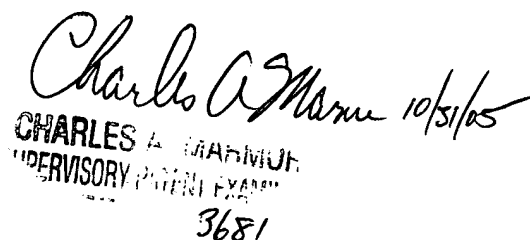 Charles A Marmor 10/31/05
CHARLES A MARMOR
SUPERVISORY PATENT EXAM
3681